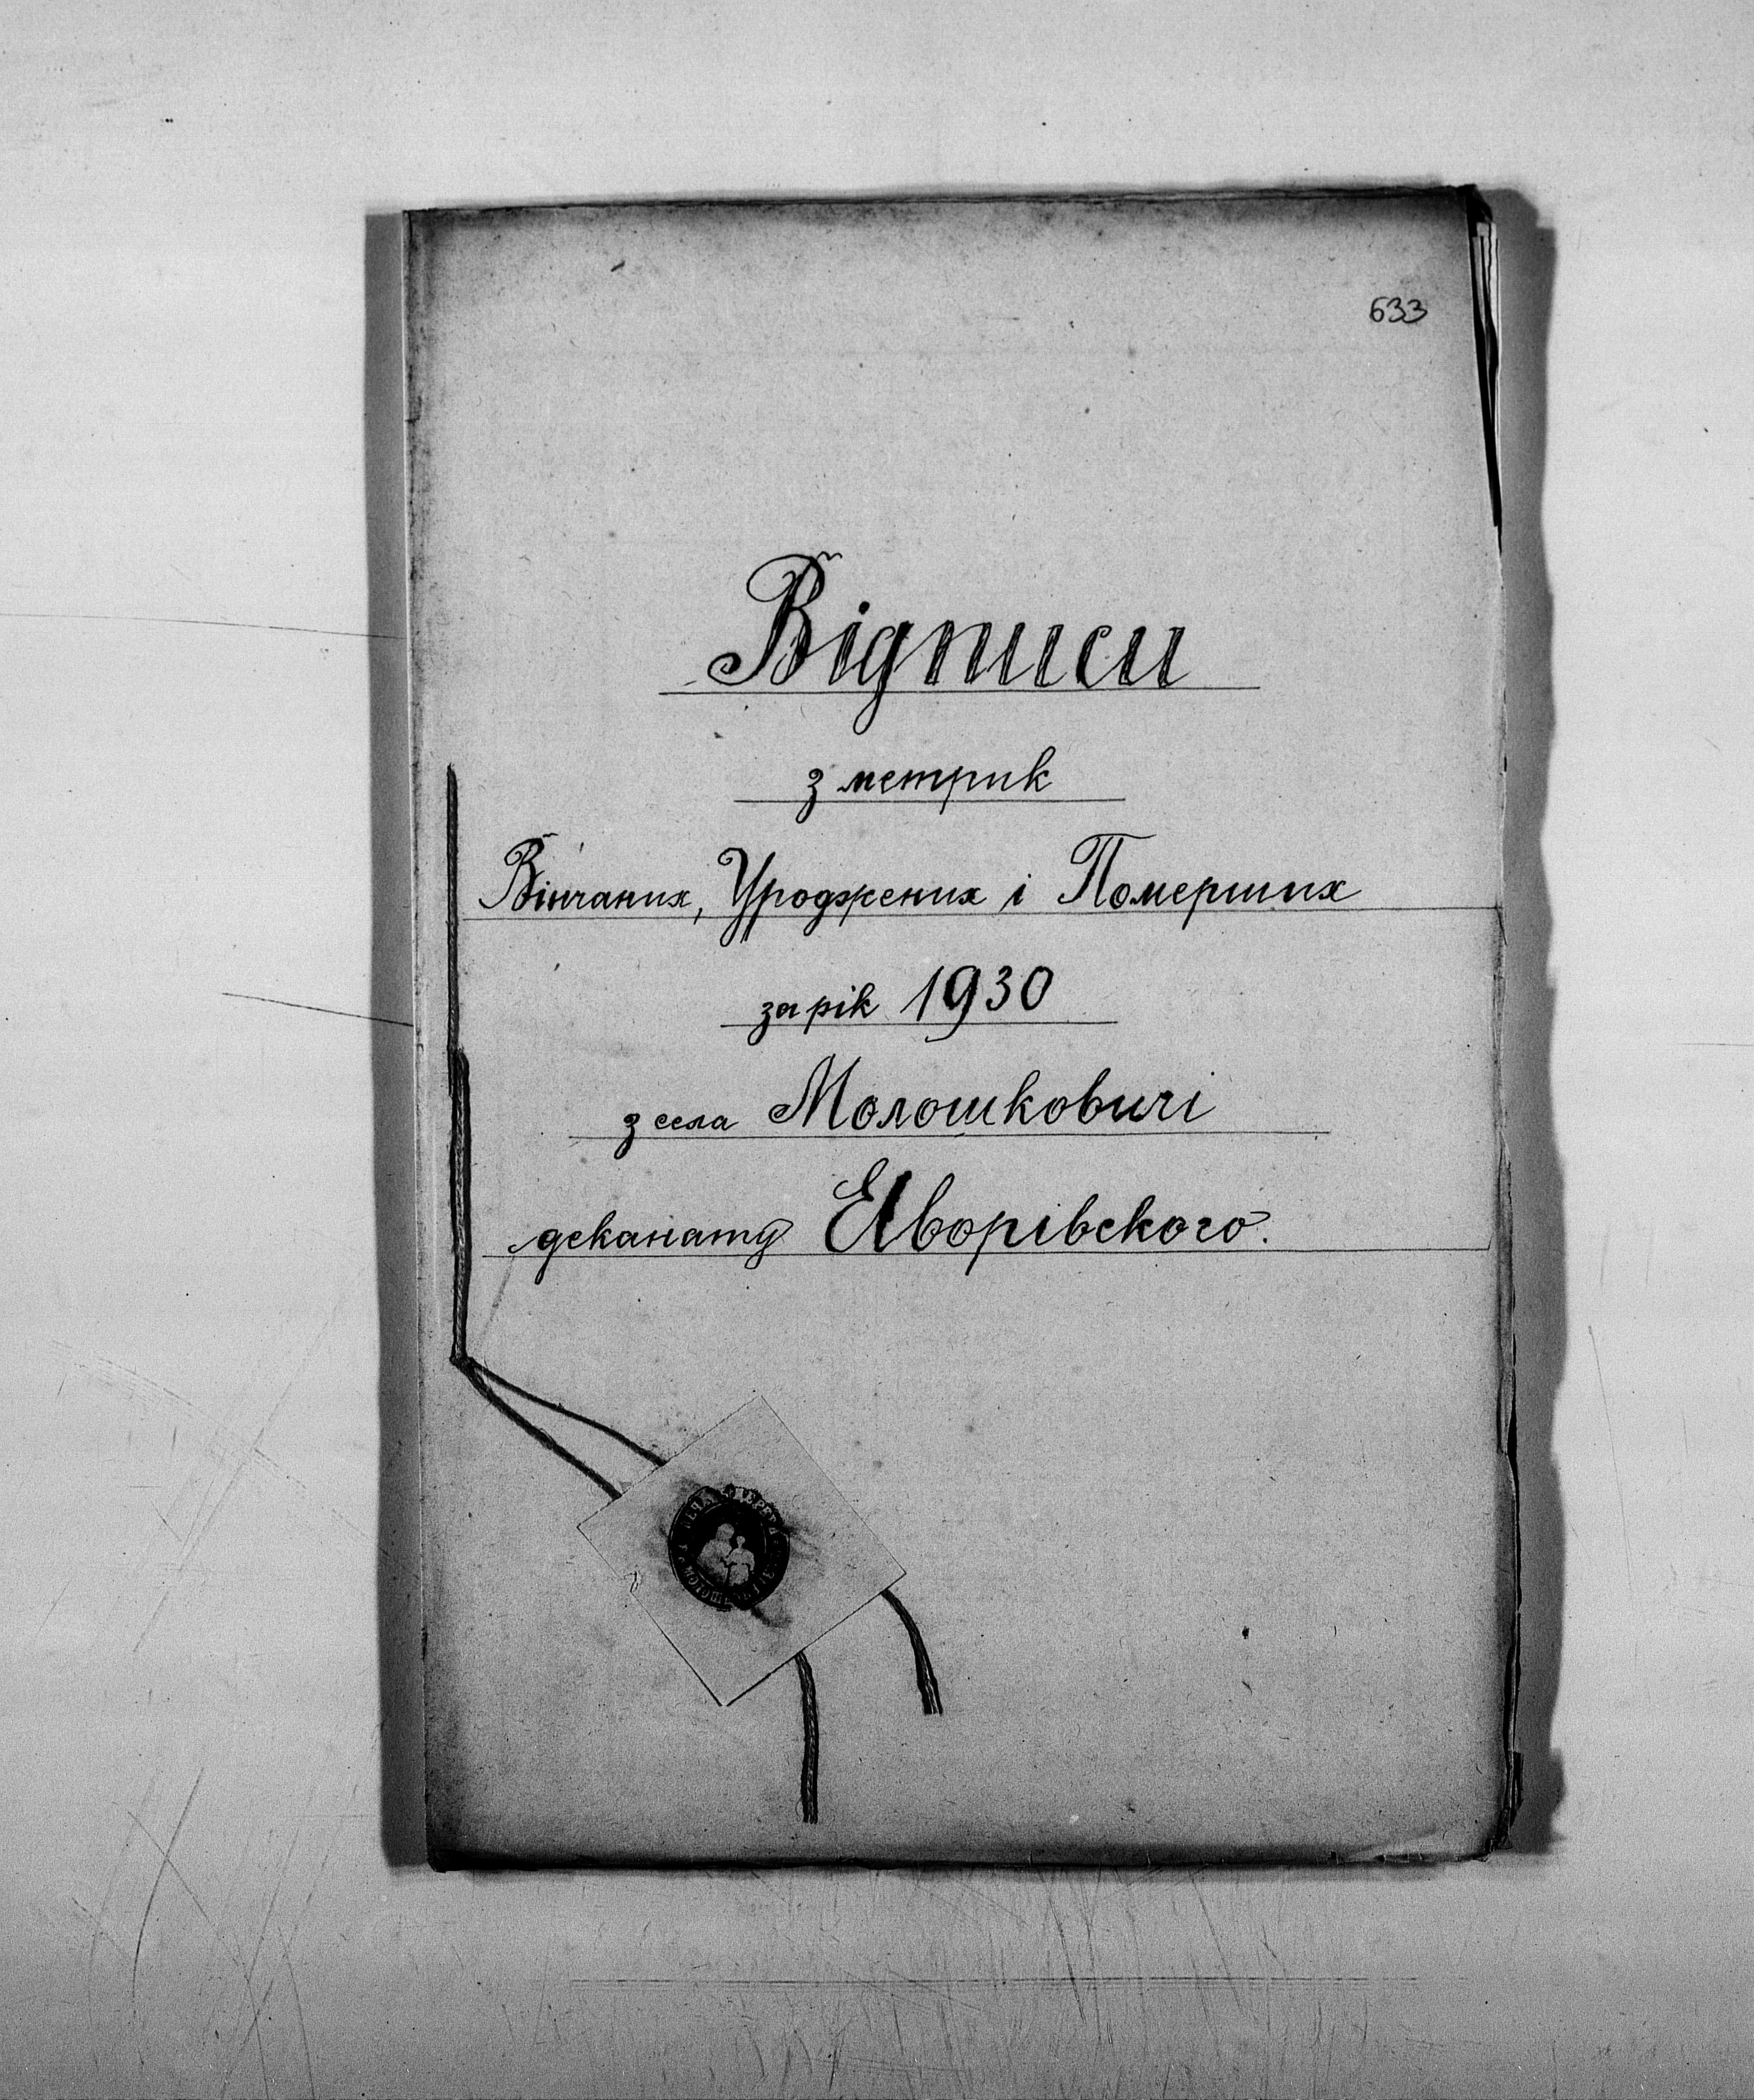 633
Відписи
з метрик
Вінчаних, Уроджених і Померших
за рік 1930
з села Молошковичі
деканату Яворівского.